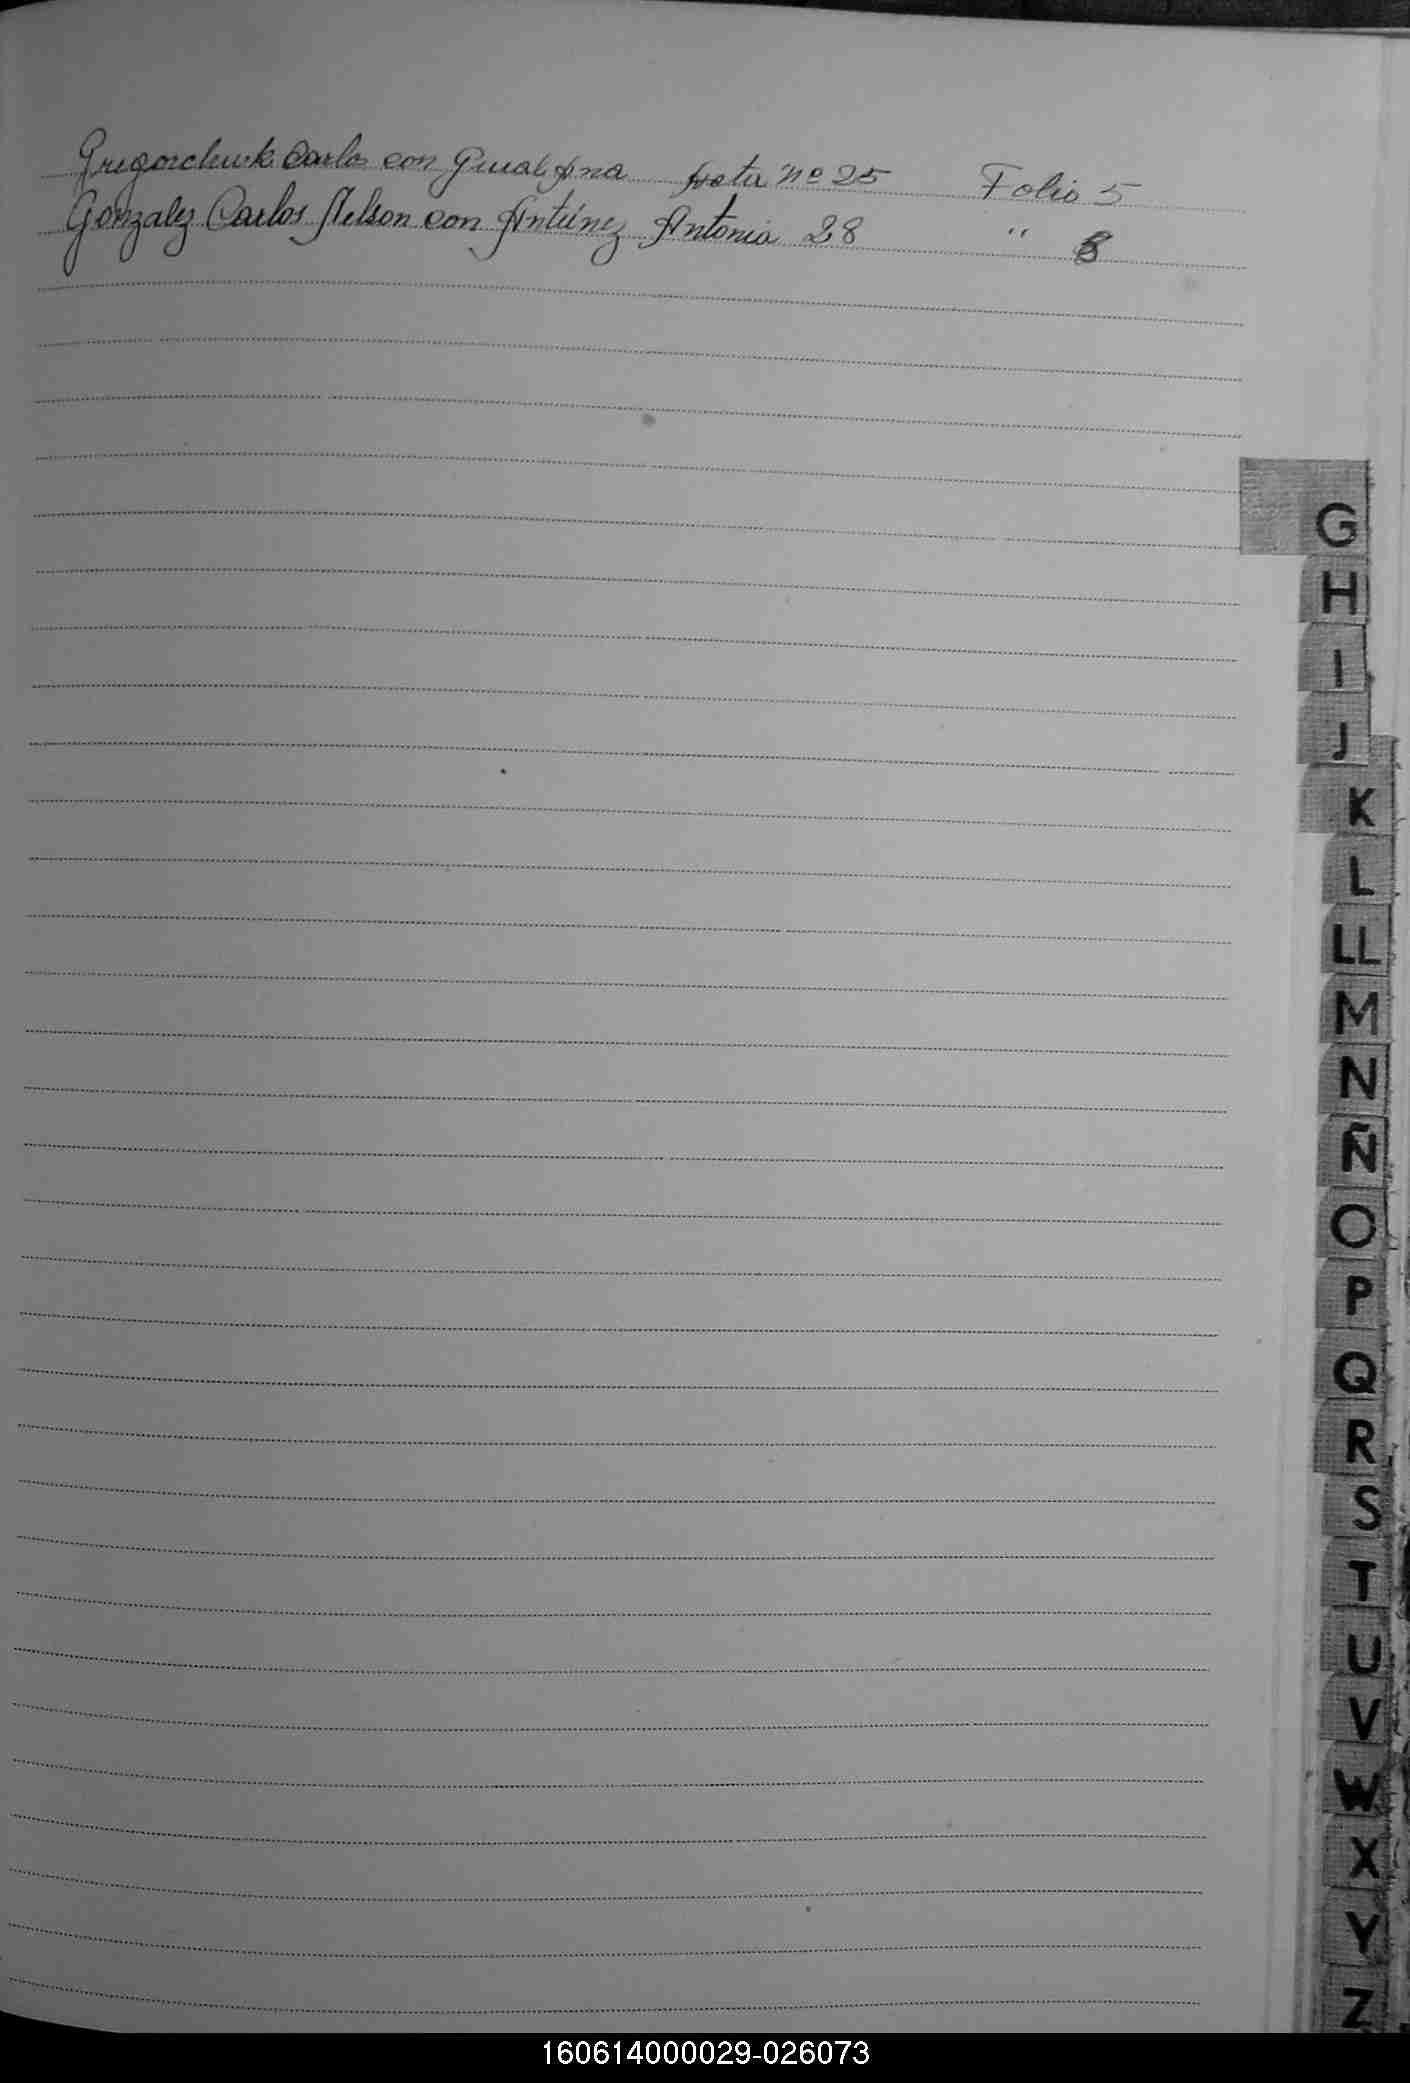 Gregorchuk Carlos con Gural Ana Acta nº 25 Folio 5
Gonzalez Carlos Nelson con Antúnez Antonia 28 " 8
G
H
I
J
K
L
LL
M
N
Ñ
O
P
Q
R
S
T
U
V
W
X
Y
Z
160614000029-026073